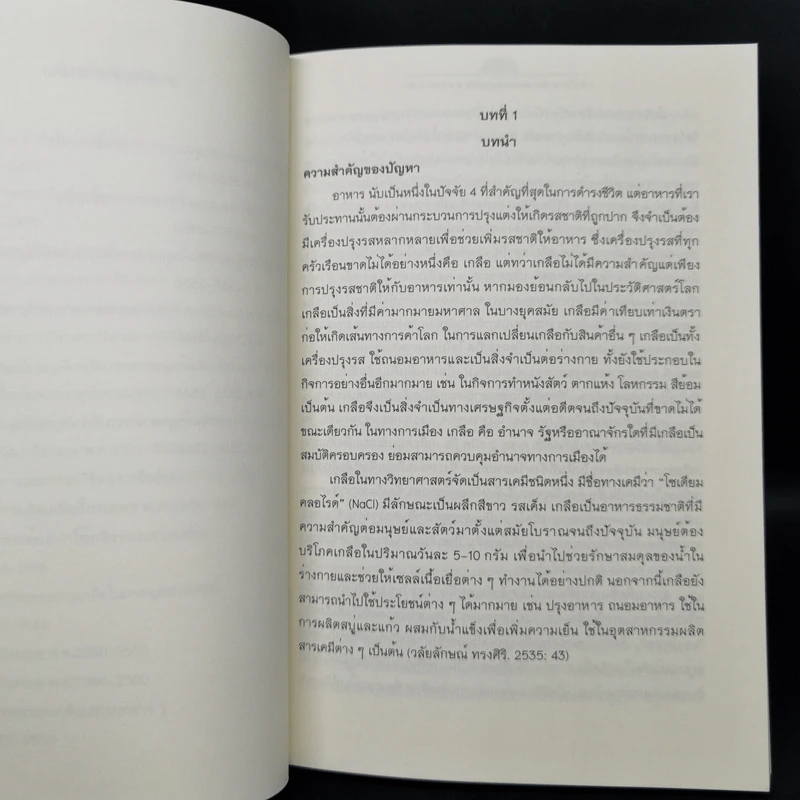 บทที่ 1
บทนำ
ความสำคัญของปัญหา
อาหาร นับเป็นหนึ่งในปัจจัย 4 ที่สำคัญที่สุดในการดำรงชีวิต แต่อาหารที่เรา
รับประทานนั้นต้องผ่านกระบวนการปรุงแต่งให้เกิดรสชาติที่ถูกปาก จึงจำเป็นต้อง
มีเครื่องปรุงรสหลากหลายเพื่อช่วยเพิ่มรสชาติให้อาหาร ซึ่งเครื่องปรุงรสที่ทุก
ครัวเรือนขาดไม่ได้อย่างหนึ่งคือ เกลือ แต่ทว่าเกลือไม่ได้มีความสำคัญแต่เพียง
การปรุงรสชาติให้กับอาหารเท่านั้น หากมองย้อนกลับไปในประวัติศาสตร์โลก
เกลือเป็นสิ่งที่มีค่ามากมายมหาศาล ในบางยุคสมัย เกลือมีค่าเทียบเท่าเงินตรา
ก่อให้เกิดเส้นทางการค้าโลก ในการแลกเปลี่ยนเกลือกับสินค้าอื่น ๆ เกลือเป็นทั้ง
เครื่องปรุงรส ใช้ถนอมอาหารและเป็นสิ่งจำเป็นต่อร่างกาย ทั้งยังใช้ประกอบใน
กิจการอย่างอื่นอีกมากมาย เช่น ในกิจการทำหนังสัตว์ ตากแห้ง โลหกรรม สีย้อม
เป็นต้น เกลือจึงเป็นสิ่งจำเป็นทางเศรษฐกิจตั้งแต่อดีตจนถึงปัจจุบันที่ขาดไม่ได้
ขณะเดียวกัน ในทางการเมือง เกลือ คือ อำนาจ รัฐหรืออาณาจักรใดที่มีเกลือเป็น
สมบัติครอบครอง ย่อมสามารถควบคุมอำนาจทางการเมืองได้
เกลือในทางวิทยาศาสตร์จัดเป็นสารเคมีชนิดหนึ่ง มีชื่อทางเคมีว่า “โซเดียม
คลอไรด์” (NaCl) มีลักษณะเป็นผลึกสีขาว รสเค็ม เกลือเป็นอาหารธรรมชาติที่มี
ความสำคัญต่อมนุษย์และสัตว์มาตั้งแต่สมัยโบราณจนถึงปัจจุบัน มนุษย์ต้อง
บริโภคเกลือในปริมาณวันละ 5-10 กรัม เพื่อนำไปช่วยรักษาสมดุลของน้ำใน
ร่างกายและช่วยให้เซลล์เนื้อเยื่อต่าง ๆ ทำงานได้อย่างปกติ นอกจากนี้เกลือยัง
สามารถนำไปใช้ประโยชน์ต่าง ๆ ได้มากมาย เช่น ปรุงอาหาร ถนอมอาหาร ใช้ใน
การผลิตสบู่และแก้ว ผสมกับน้ำแข็งเพื่อเพิ่มความเย็น ใช้ในอุตสาหกรรมผลิต
สารเคมีต่าง ๆ เป็นต้น (วลัยลักษณ์ ทรงศิริ. 2535: 43)